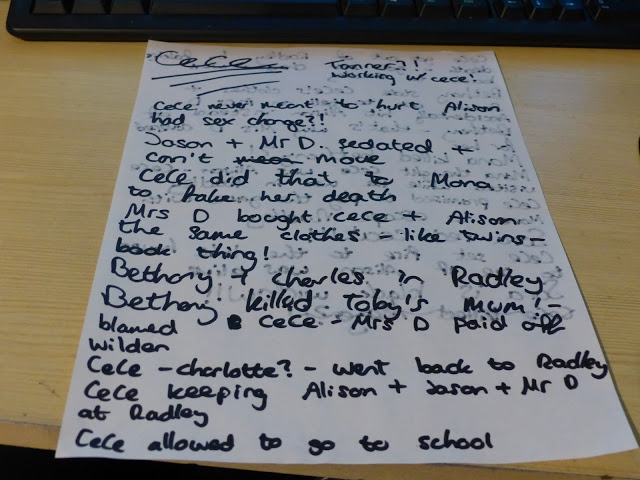 CeCe
Tanner?!
working w/ cece!
CeCe never meant to hurt Alison
had sex change?!
Jason + Mr D sedated +
can't mean move
CeCe did that to Mona
to fake her death
Mrs D bought cece + Alison
the same clothes - like twins -
book thing!
Bethany + charles in Radley
Bethany killed Toby's mum! -
blamed CeCe - Mrs D paid off
wilden
CeCe - charlotte? - went back to Radley
CeCe keeping Alison + Jason + Mr D
at Radley
CeCe allowed to go to school